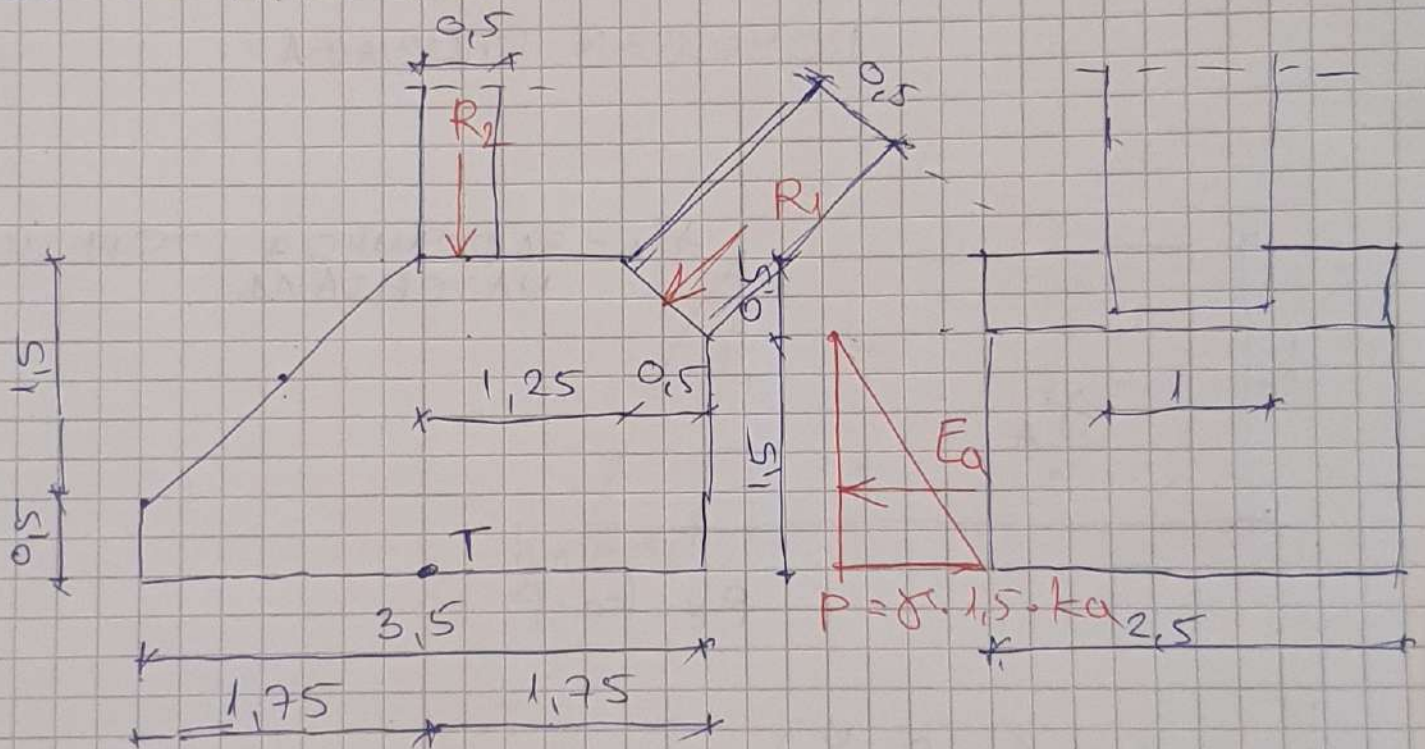 0,5
R₂
0,5
R₁
1,5
0,5
0,5
1,25 0,5
1,5
1
Ea
T
3,5
p = γ · 1,5 · ka
2,5
1,75 1,75